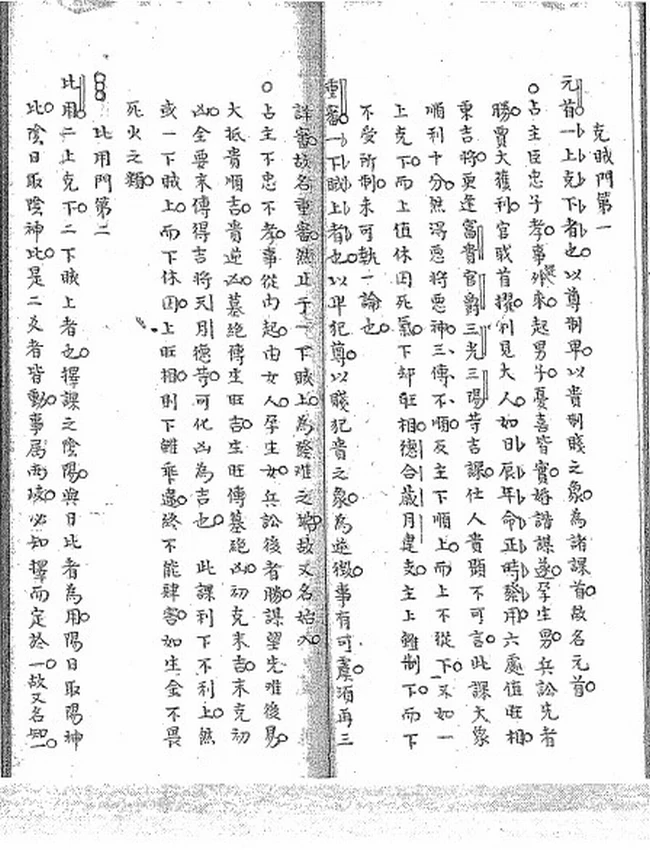 克賊門第一
元首一上克下者也以尊制卑以貴制賤之象為諸課首故名元首
占主臣忠子孝事從外來起男子憂喜皆實婚諧謀遂孕生男兵訟先者
勝賈大獲利官職首擢利見大人如日辰年命正時發用六處值旺相
乘吉將更逢富貴官爵三光三陽等吉課仕人貴顯不可言此課大象
順利十分然得惡將惡神三傳不順反主下順上而上不從下又如一
上克下而上值休囚死氣下却旺相德合歲月建支主上雖制下而下
不受所制未可執一論也
重審一下賊上者也以卑犯尊以賤犯貴之象為逆徵事有可慮須再三
詳審故名重審然止于一下賊上為發难之端故又名始入
占主不忠不孝事從內起由女人孕生女兵訟後者勝謀望先难後易
大抵貴順吉貴逆凶墓絕傳生旺吉生旺傳墓絕凶初克末吉末克初
凶全要末傳得吉將天月德等可化凶為吉也 此課利下不利上然
或一下賊上而下休囚上旺相則下雖乘違終不能肆害如生金不畏
死火之類
比用門第二
比用二上克下二下賊上者也擇課之陰陽與日比者為用陽日取陽神
比陰日取陰神比是二爻者皆動事屬兩歧必知擇而定於一故又名知一